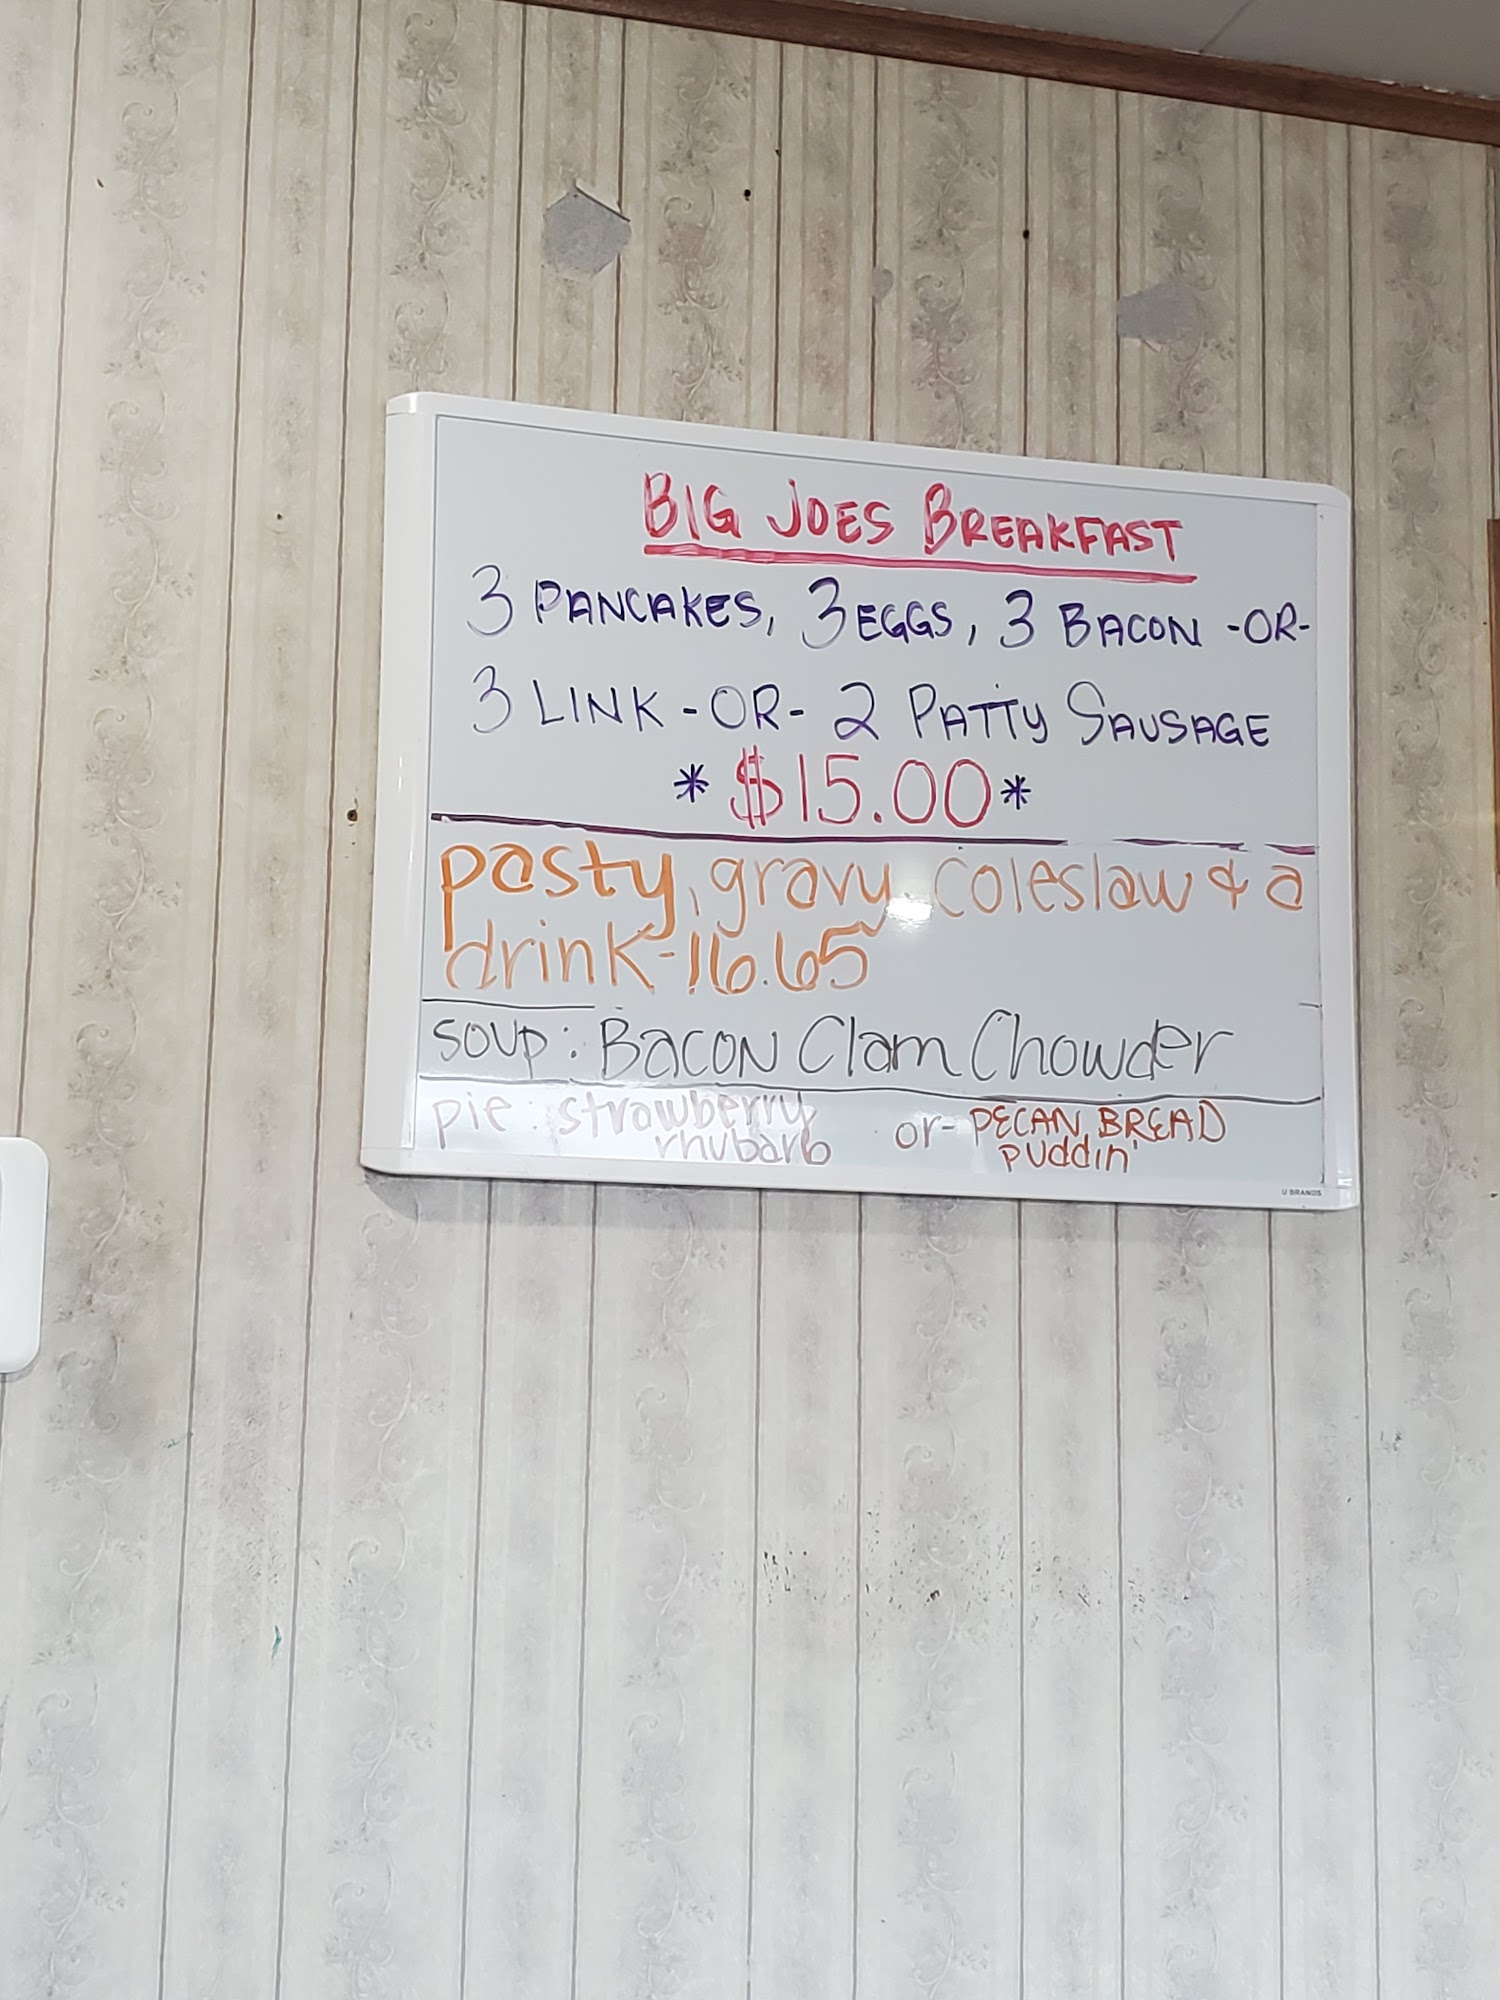 BIG JOES BREAKFAST
3 PANCAKES, 3 EGGS, 3 BACON -OR-
3 LINK -OR- 2 PATTY SAUSAGE
* $15.00 *
pasty, gravy, coleslaw & a
drink-16.65
soup: Bacon Clam Chowder
pie: strawberry rhubarb or- PECAN BREAD puddin'
U BRANDS